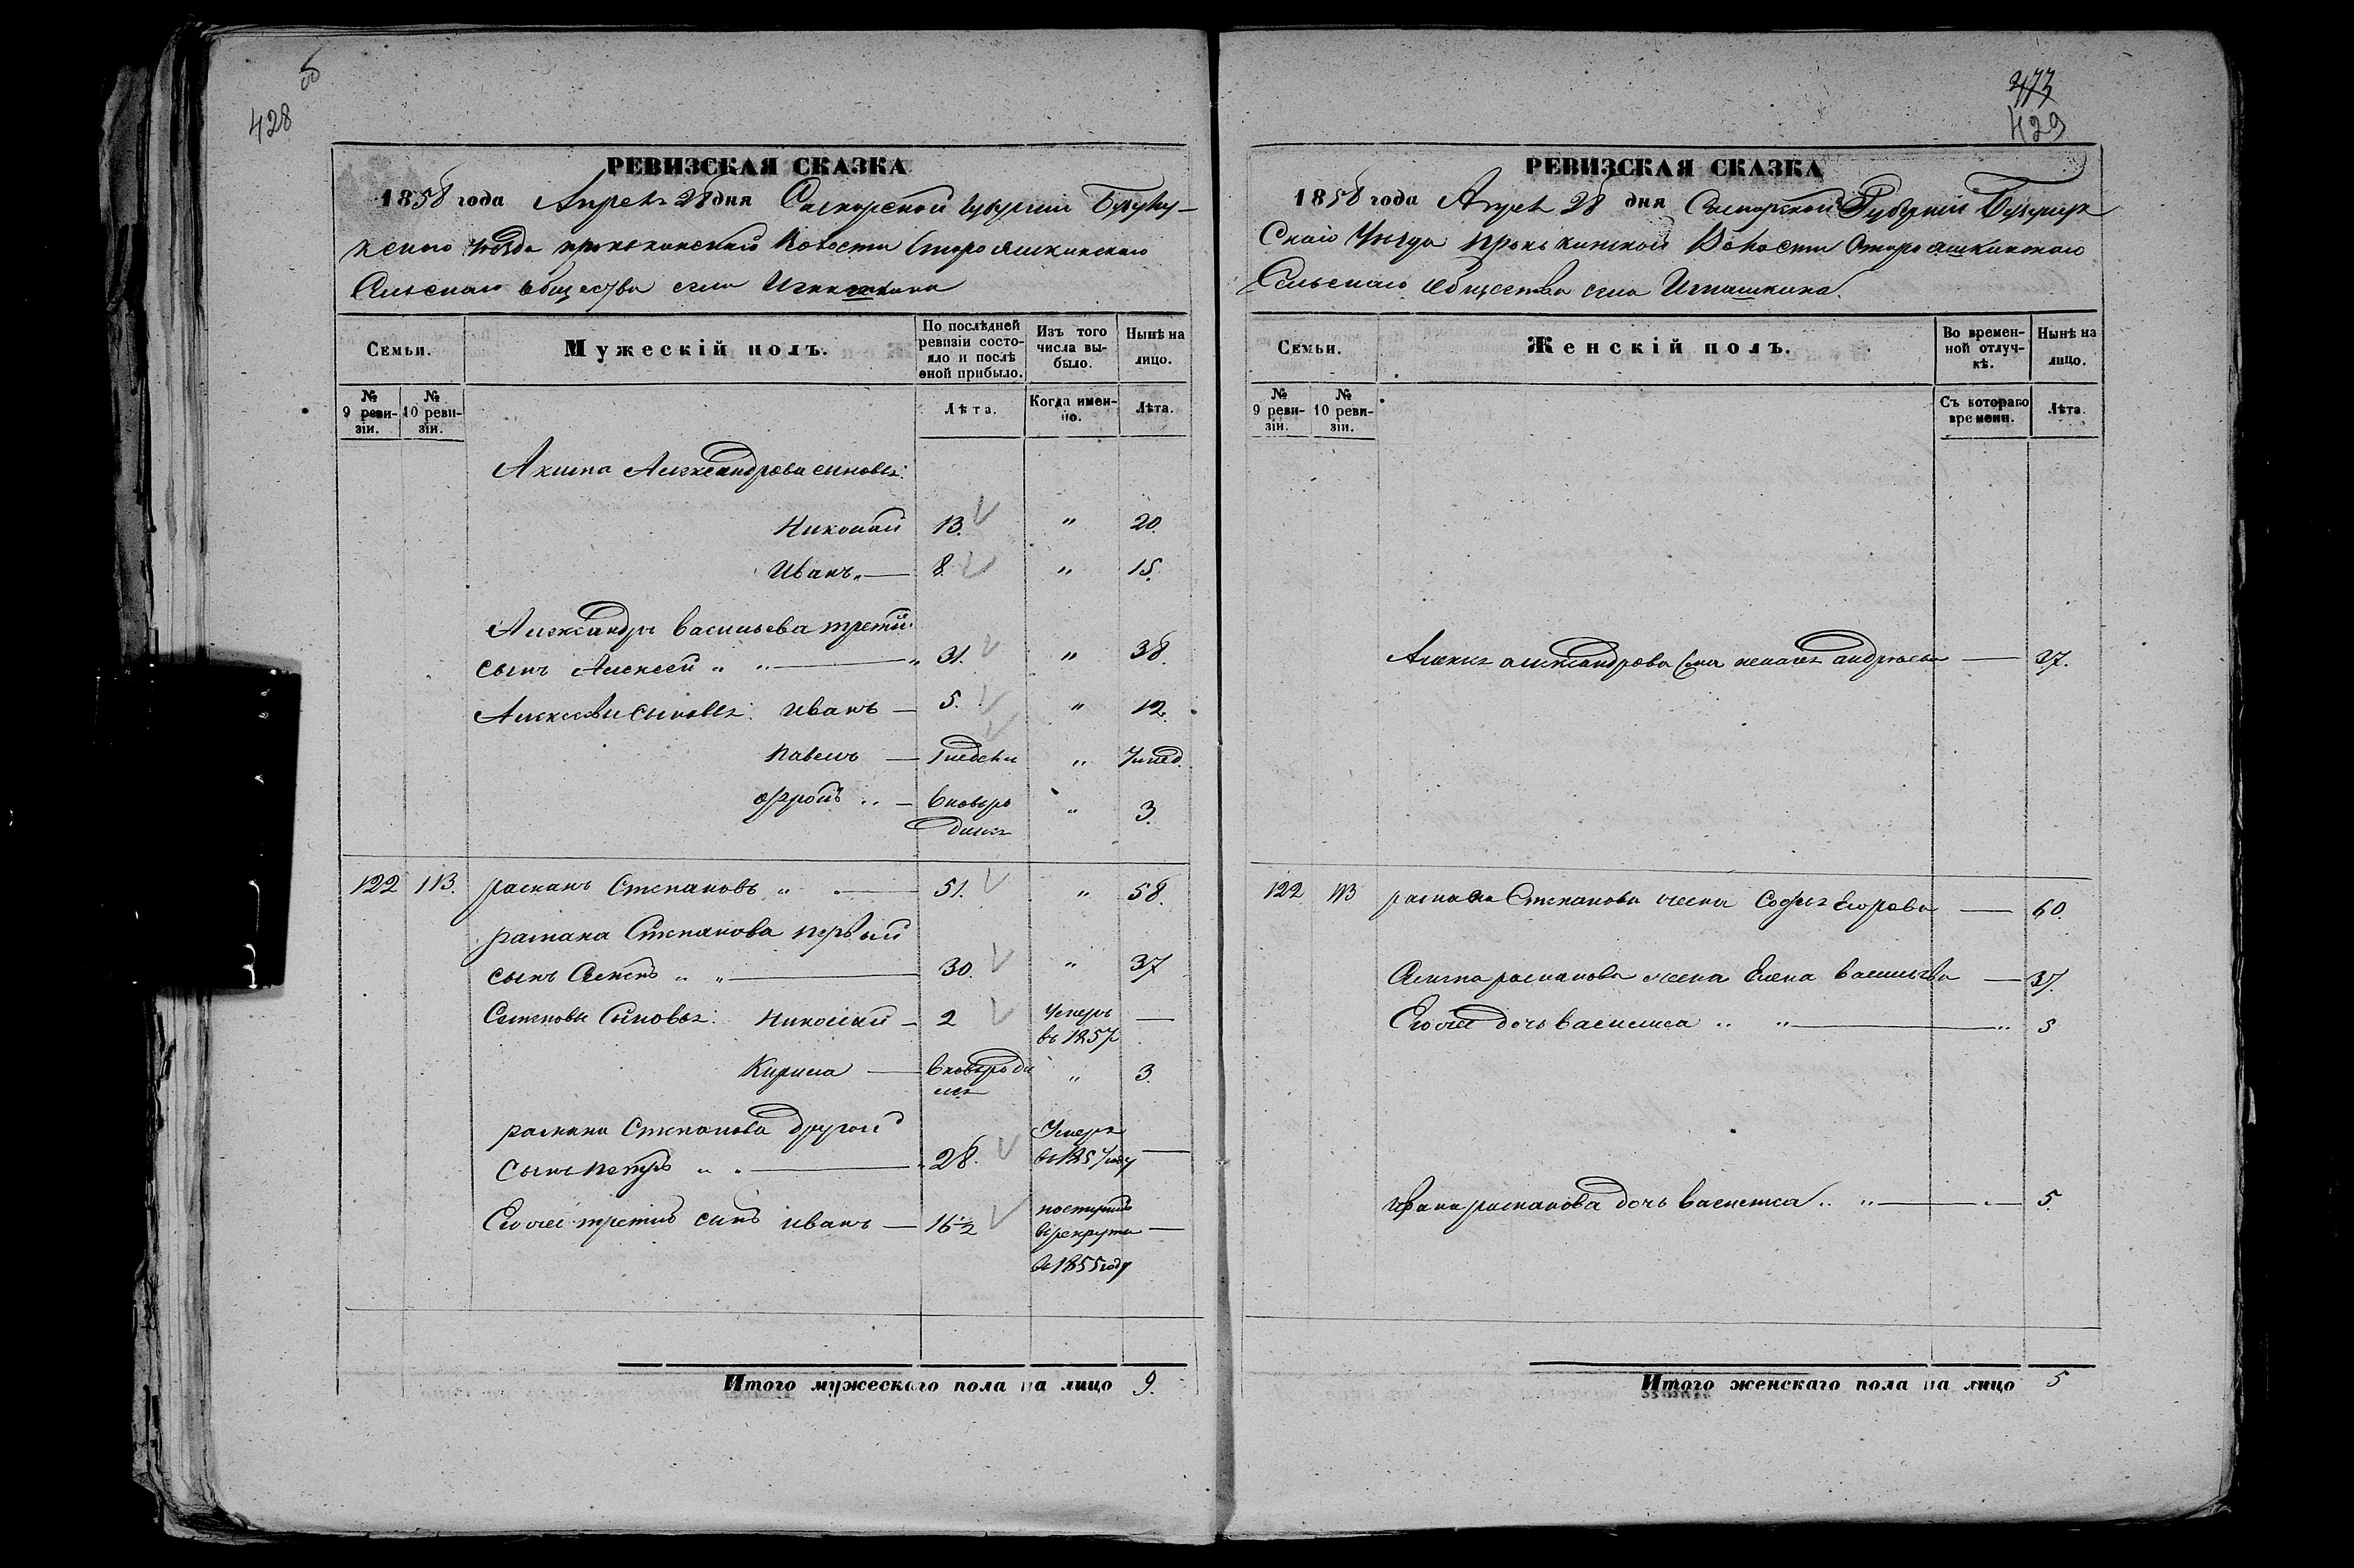 428
РЕВИЗСКАЯ СКАЗКА
1858 года Апреля 28 дня Самарской губернии Бузулу-
кскаго уезда пронькинской Волости Старояшкинскаго
Сельскаго общества села Игнашкина
Семьи.
Мужескій полъ.
По послѣдней ревизіи состояло и послѣ оной прибыло.
Изъ того числа выбыло.
Нынѣ на лицо.
№ 9 ревизіи.
№ 10 ревизіи.
Лѣта.
Когда именно.
Лѣта.
Акима Александрова сыновья:
Николай 13. " 20.
Иванъ „ — 8. " 15.
Александра васильева третій
сынъ Алексей " " — 31. " 38.
Алексеевы сыновья: Иванъ — 5. " 12.
Павелъ — "
— вновьро "  3.
дился
122 113. Степановъ " " — 51. " 58.
Степанова первый
сынъ " " — 30. " 37
Семеновы сыновья: Николай — 2 Умеръ —
въ 1857
Кирила — вновьроди " 3.
лся
Степанова другой Умеръ
сынъ петръ " " — 28. въ 185 году —
Егоже третий сынъ иванъ — 16 1/2 поступилъ
врекруты —
въ 1855 году
Итого мужескаго пола на лицо 9.
473
429
РЕВИЗСКАЯ СКАЗКА
1858 года Апреля 28 дня Самарской Губерніи Бузулук
Скаго Уезда пронькинской Волости Старояшкинскаго
Сельскаго общества села Игнашкина.
Семьи.
Женскій полъ.
Во временной отлучкѣ.
Нынѣ на лицо.
№ 9 ревизіи.
№ 10 ревизіи.
Съ котораго времени.
Лѣта.
александрова жена андреева — 37.
122 113 Степанова жена Софья Егорова — 60.
жена Елена васильева — 37.
Егоже дочь василиса " " — " 3
дочь василиса " " — " 5.
Итого женскаго пола на лицо 5